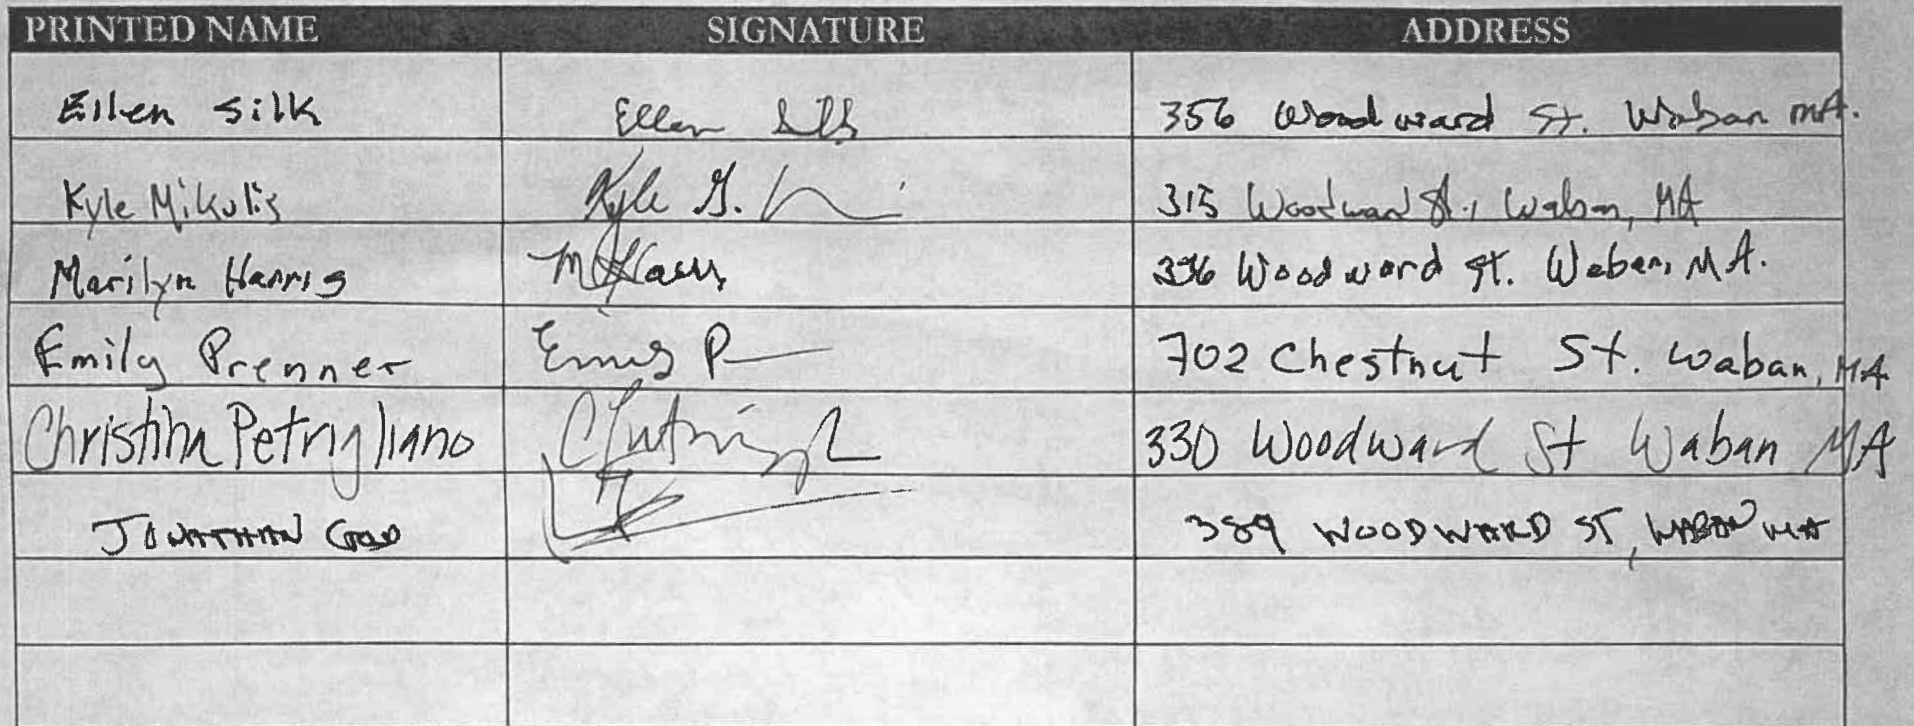 PRINTED NAME SIGNATURE ADDRESS
Ellen Silk Ellen Silk 356 Woodward St. Waban MA.
Kyle Mikulis Kyle G. 315 Woodward St., Waban, MA
Marilyn Harris M Harris Woodward St. Waban, MA.
Emily Prenner Emily P 702 Chestnut St. Waban, MA
Christina Petrigliano 330 Woodward St Waban MA
JONATHAN 389 WOODWARD ST, WABAN MA